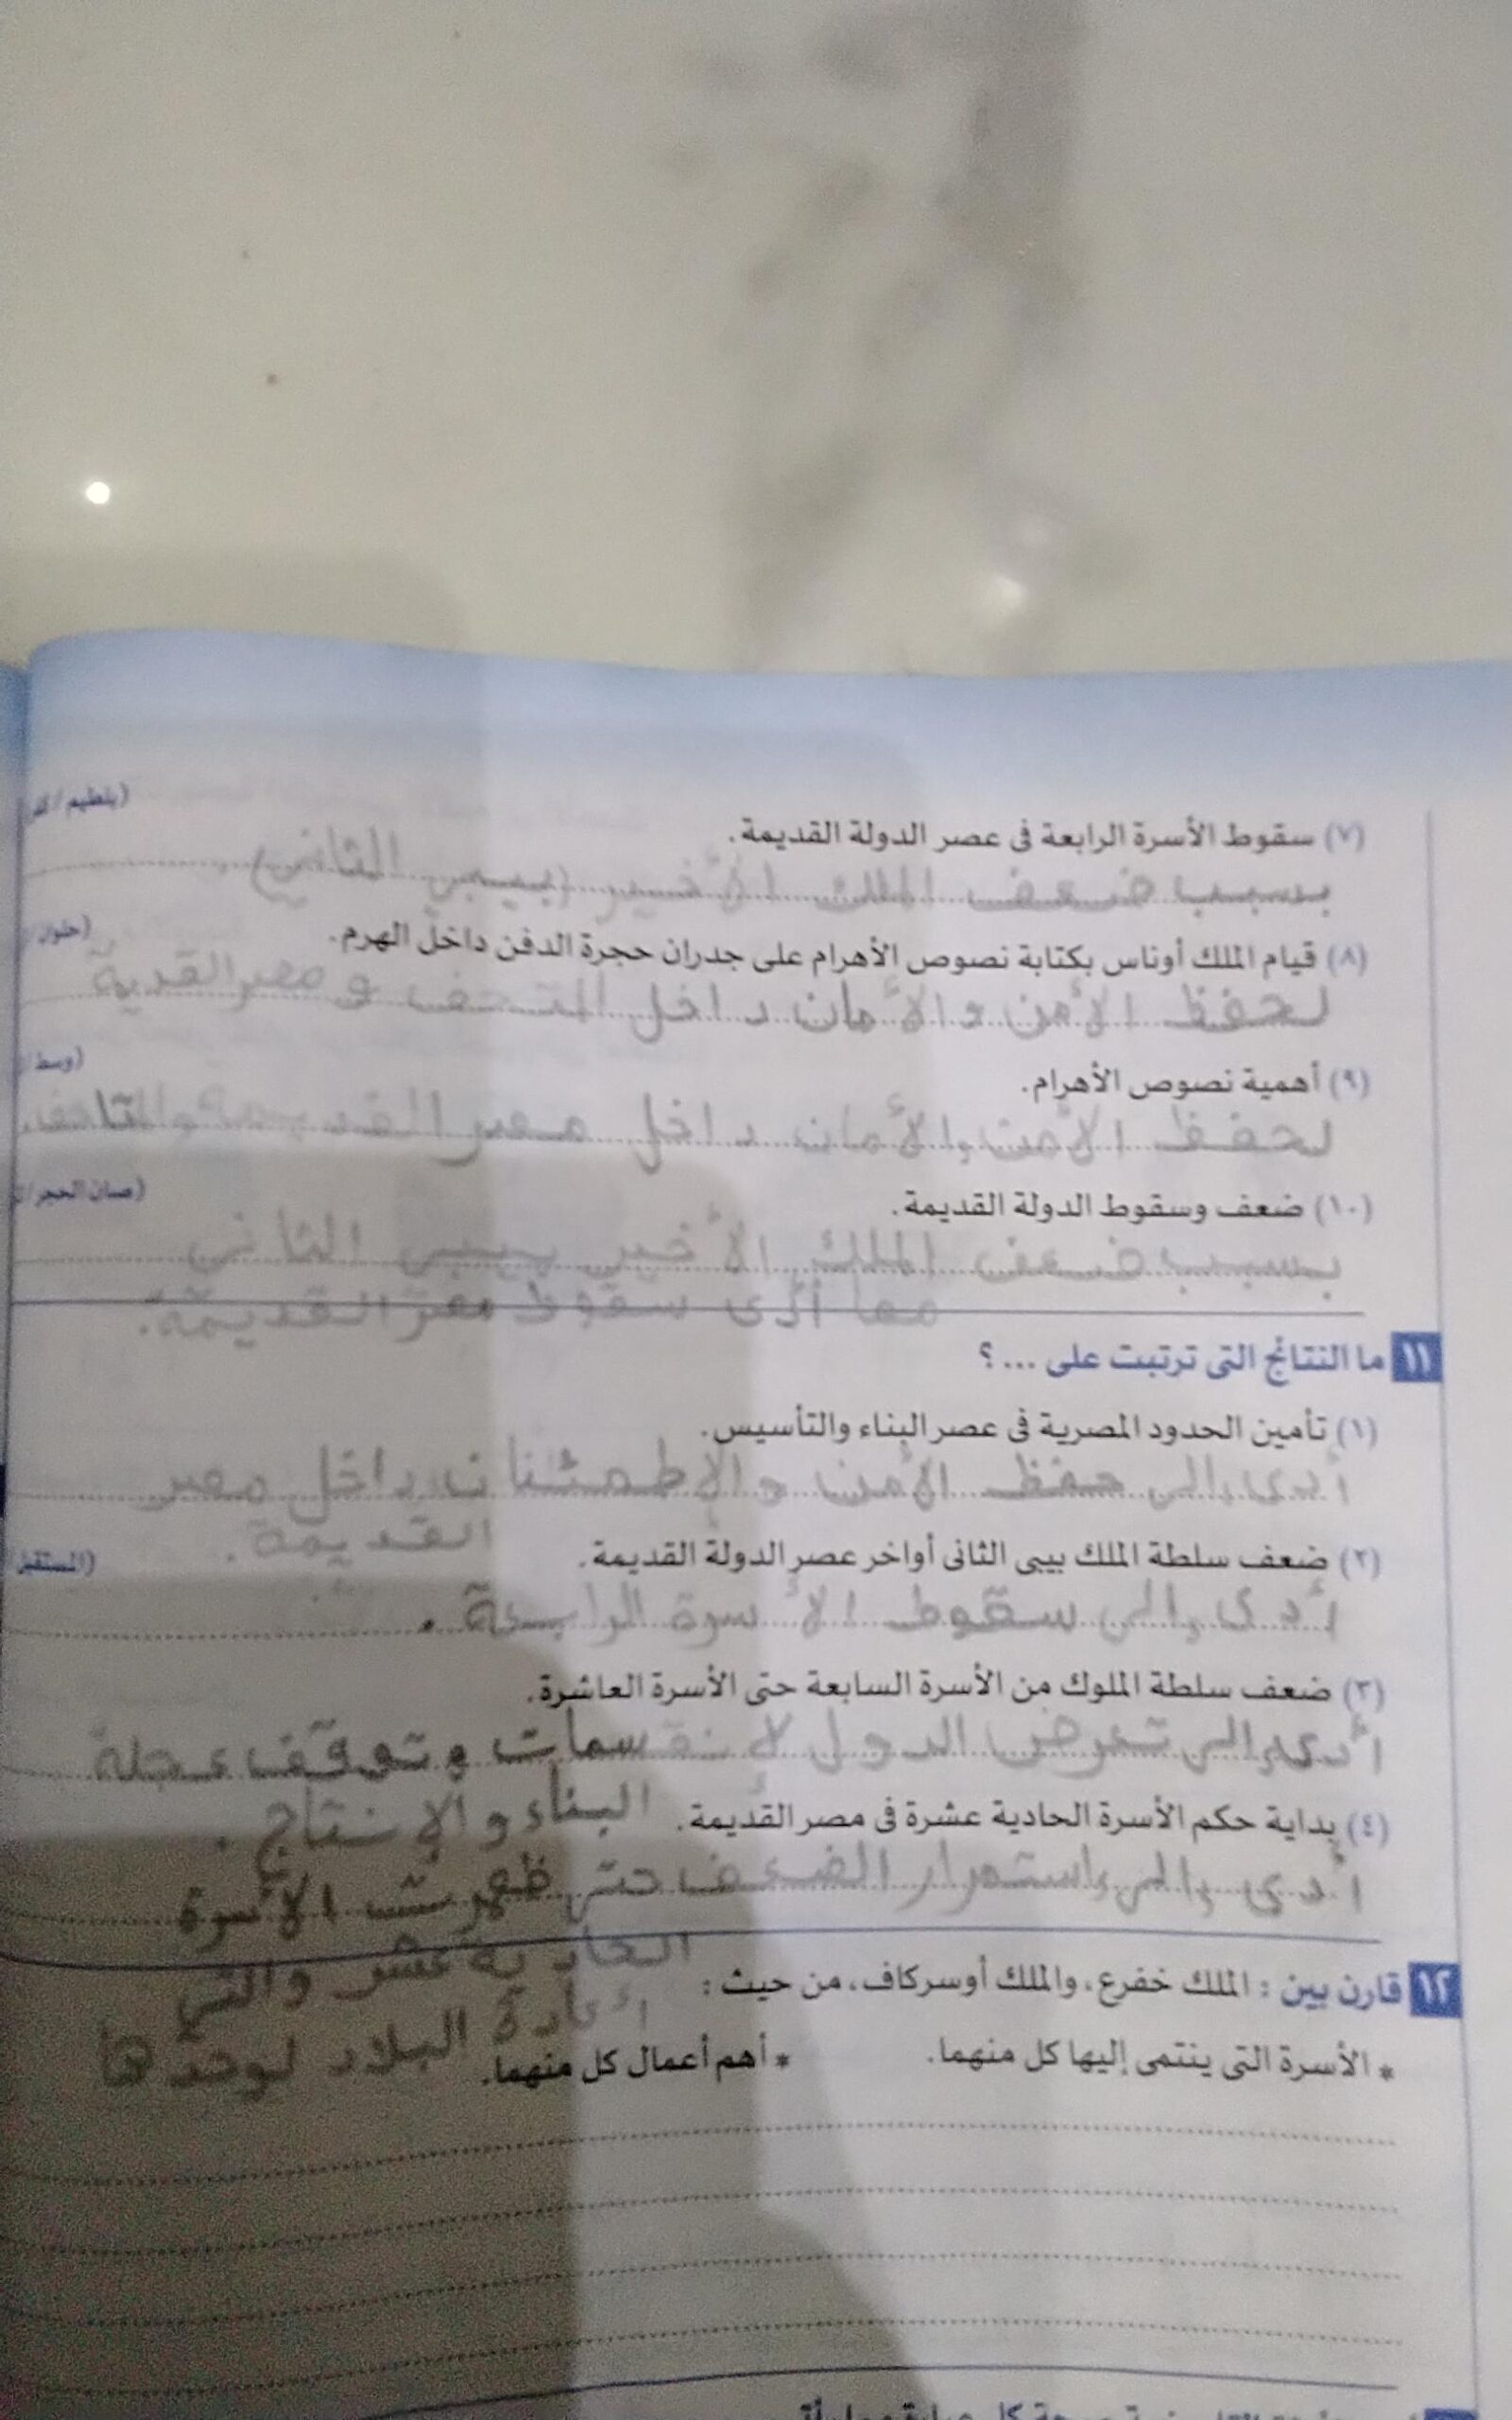 (بلطيم /
(٧) سقوط الأسرة الرابعة فى عصر الدولة القديمة.
بسبب ضعف الملك الأخير (بيبي الثاني).
(حلوان /
(٨) قيام الملك أوناس بكتابة نصوص الأهرام على جدران حجرة الدفن داخل الهرم.
لحفظ الأمن و الأمان داخل المتحف و مصر القديمة
(وسط /
(٩) أهمية نصوص الأهرام.
لحفظ الأمن والأمان داخل مصر القديمة
(صان الحجر /
(١٠) ضعف وسقوط الدولة القديمة.
بسبب ضعف الملك الأخير بيبي الثاني
مما أدى سقوط مصر القديمة.
١١ ما النتائج التى ترتبت على ... ؟
(١) تأمين الحدود المصرية فى عصر البناء والتأسيس.
أدى إلى حفظ الأمن و الإطمئنان داخل مصر
القديمة.
(المستقبل /
(٢) ضعف سلطة الملك بيبى الثانى أواخر عصر الدولة القديمة.
أدى إلى سقوط الأسرة الرابعة.
(٣) ضعف سلطة الملوك من الأسرة السابعة حتى الأسرة العاشرة.
أدى إلى تعرض الدول لإنقسمات وتوقف عجلة
البناء و الإنتاج.
(٤) بداية حكم الأسرة الحادية عشرة فى مصر القديمة.
أدى إلى إستمرار الضعف حتى ظهرت الأسرة
الحادية عشر والتي
أعادة البلاد لوحدها
١٢ قارن بين : الملك خفرع، والملك أوسركاف، من حيث :
* الأسرة التى ينتمى إليها كل منهما. * أهم أعمال كل منهما.